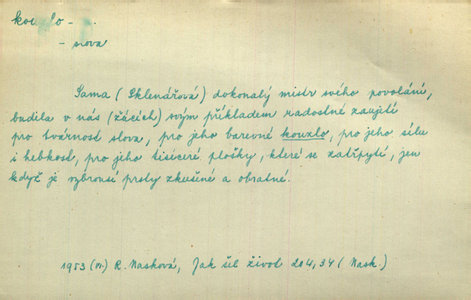 kouzlo -
- slova
Sama (Sklenářová) dokonalý mistr svého povolání,
budila v nás (žácích) svým příkladem radostné zaujetí
pro tvárnost slova, pro jeho barevné kouzlo, pro jeho sílu
i hebkost, pro jeho tisíceré plošky, které se zatřpytí, jen
když je vybrousí prsty zkušené a obratné.
1953 R. Nasková, Jak šel život 204, 34 (Nask.)